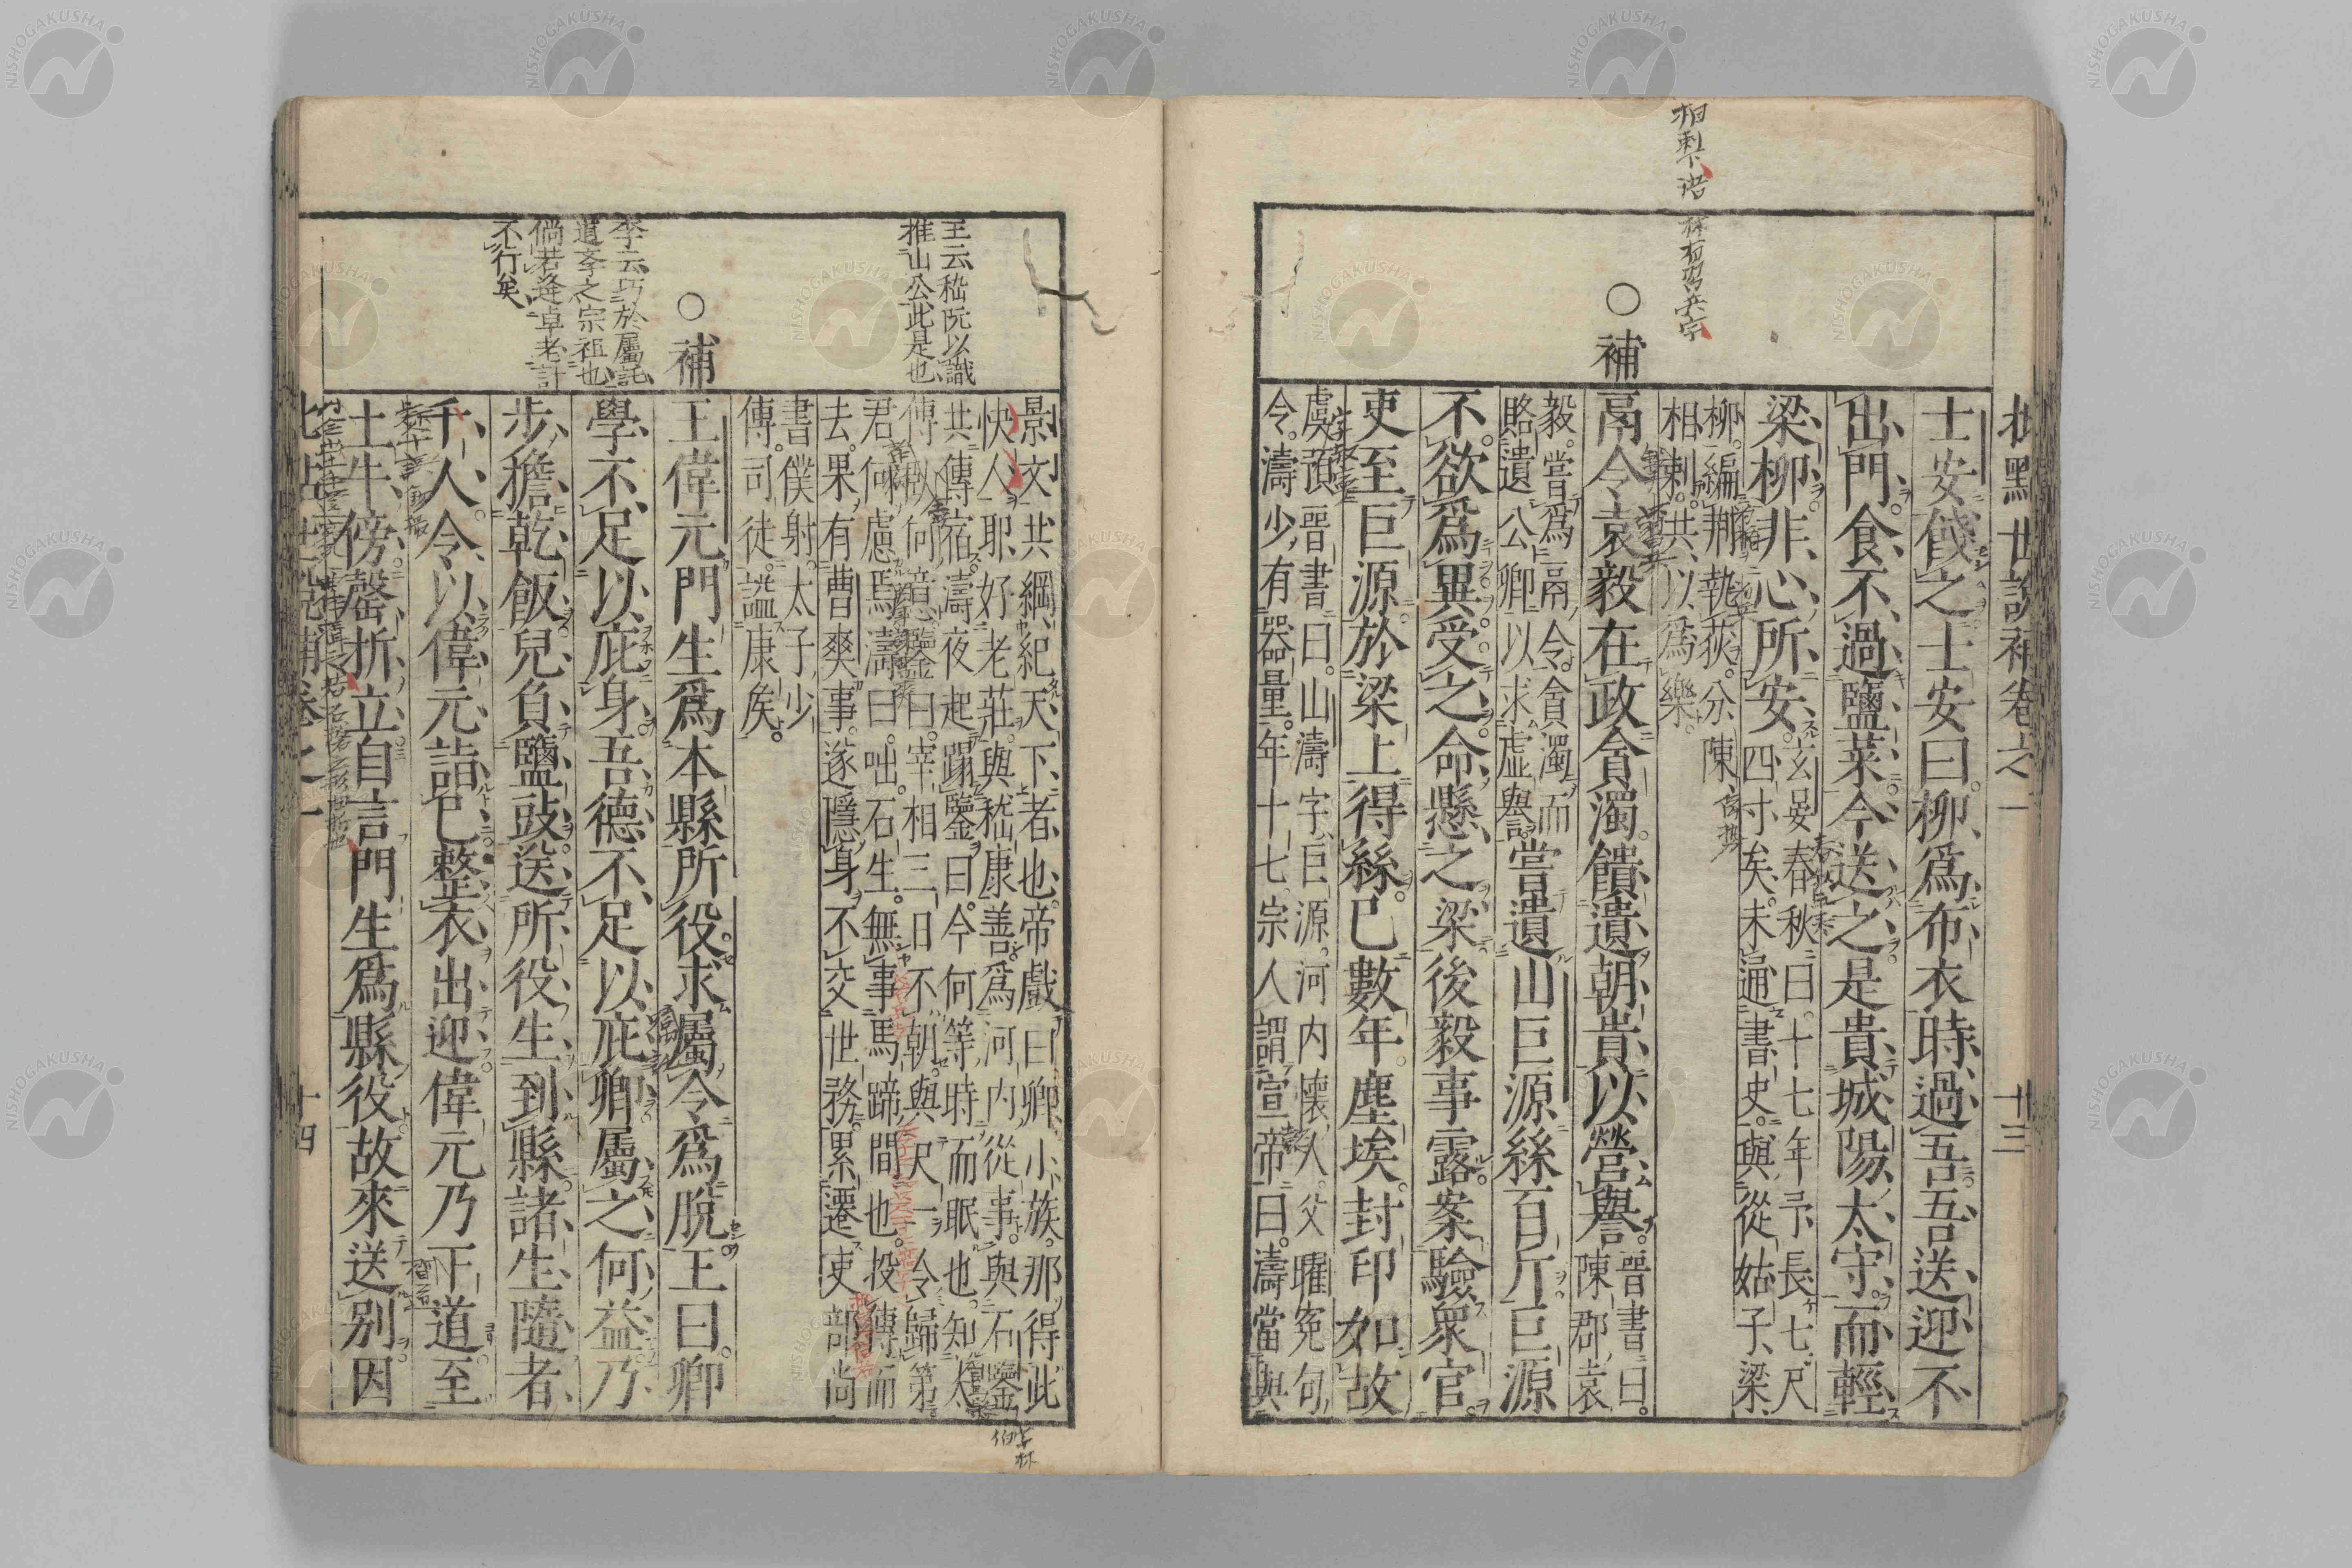 批點世說補卷之一
十三
士安餞之士安曰柳爲布衣時過吾吾送迎不
出門食不過鹽菜今送之是貴城陽太守而輕
梁柳非心所安
玄晏春秋曰十七年予長七尺
四寸矣未通書史與從姑子梁
柳編荆執荻分陳
相刺共以爲樂
補
鬲令袁毅在政貪濁饋遺朝貴以營譽
晉書曰
陳郡袁
毅嘗爲鬲令貪濁而
賂遺公卿以求虛譽
嘗遺山巨源絲百斤巨源
不欲爲異受之命懸之梁後毅事露案驗衆官
吏至巨源於梁上得絲已數年塵埃封印如故
虞預晉書曰山濤字巨源河内懷人父曜冤句
令濤少有器量年十七宗人謂宣帝曰濤當與
景文共綱紀天下者也帝戲曰卿小族那得此
快人耶好老莊與嵇康善爲河内從事與石鑒
共傳宿濤夜起蹋鑒曰今何等時而眠也知太
傅臥何意鑒曰宰相三日不朝與尺一令歸第
君何慮焉濤曰咄石生無事馬蹄間也投傳而
去果有曹爽事遂隱身不交世務累遷吏部尚
書僕射太子少
傅司徒謚康矦
王云嵇阮以識
推山公此是也
補
王偉元門生爲本縣所役求屬令爲脫王曰卿
學不足以庇身吾德不足以庇卿屬之何益乃
步擔乾飯兒負鹽豉送所役生到縣諸生隨者
千人令以偉元詣已整衣出迎偉元乃下道至
土牛傍罄折立自言門生爲縣役故來送別因
李云巧於屬託
道李之宗祖也
倘若逢卓老計
不行矣
十四
NISHOGAKUSHA